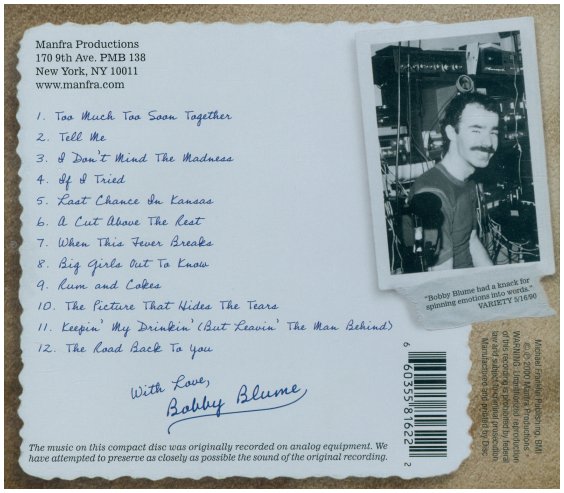 Manfra Productions
170 9th Ave. PMB 138
New York, NY 10011
www.manfra.com
1. Too Much Too Soon Together
2. Tell Me
3. I Don't Mind The Madness
4. If I Tried
5. Last Chance In Kansas
6. A Cut Above The Rest
7. When This Fever Breaks
8. Big Girls Out To Know
9. Rum and Cokes
10. The Picture That Hides The Tears
11. Keepin' My Drinkin' (But Leavin' The Man Behind)
12. The Road Back To You
With Love,
Bobby Blume
The music on this compact disc was originally recorded on analog equipment. We
have attempted to preserve as closely as possible the sound of the original recording.
"Bobby Blume had a knack for
spinning emotions into words."
VARIETY 5/16/90
6 60355 81622 2
Michael Franklin Publishing, BMI
© ℗ 2000 Manfra Productions
WARNING: Unauthorized reproduction
of this recording is prohibited by federal
law and subject to criminal prosecution.
Manufactured and printed by Disc